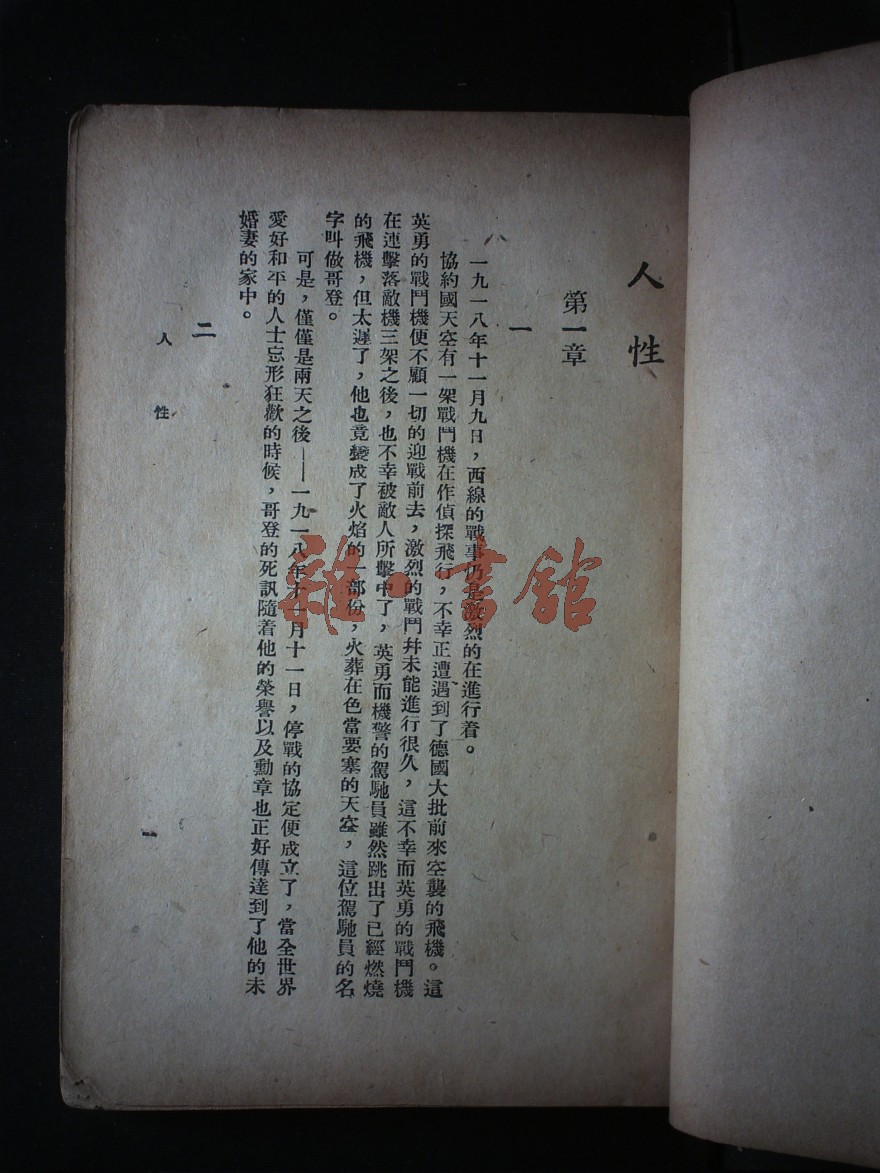 人性
第一章
一
一九一八年十一月九日，西線的戰事仍是激烈的在進行着。
協約國天空有一架戰鬥機在作偵探飛行，不幸正遭遇到了德國大批前來空襲的飛機。這
英勇的戰鬥機便不顧一切的迎戰前去，激烈的戰鬥幷未能進行很久，這不幸而英勇的戰鬥機
在連擊落敵機三架之後，也不幸被敵人所擊中了，英勇而機警的駕駛員雖然跳出了已經燃燒
的飛機，但太遲了，他也竟變成了火焰的一部份，火葬在色當要塞的天空，這位駕駛員的名
字叫做哥登。
可是，僅僅是兩天之後——一九一八年十一月十一日，停戰的協定便成立了，當全世界
愛好和平的人士忘形狂歡的時候，哥登的死訊隨着他的榮譽以及勳章也正好傳達到了他的未
婚妻的家中。
二
人性
一
雜·書館